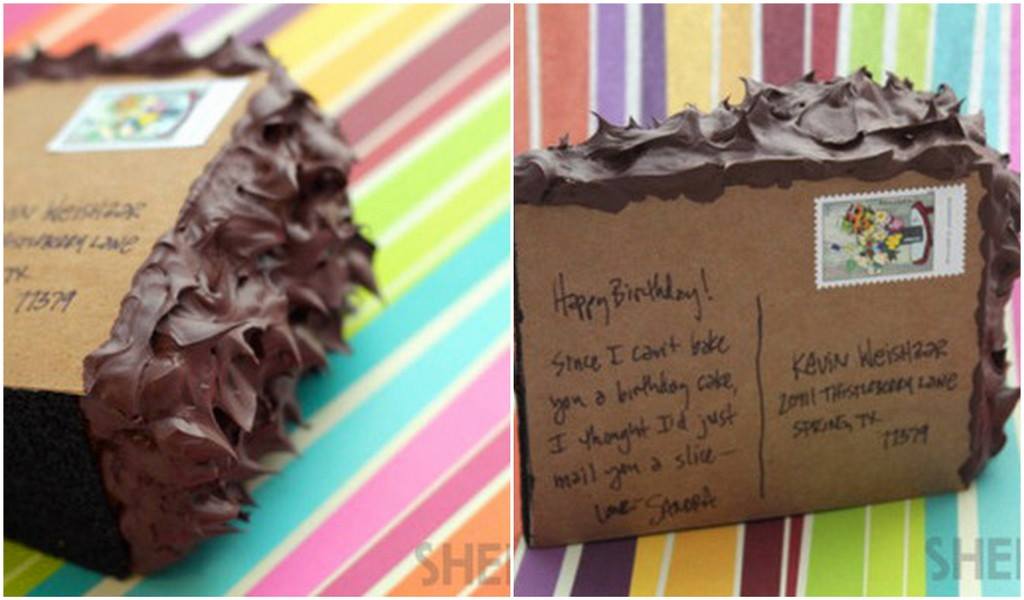 WEISHAAR
THISTLEBERRY LANE
TX
77379
SHE
Happy Birthday!
Since I can't bake
you a birthday cake,
I thought I'd just
mail you a slice—
Love- SANDRA
KEVIN WEISHAAR
20711 THISTLEBERRY LANE
SPRING, TX
77379
SHE